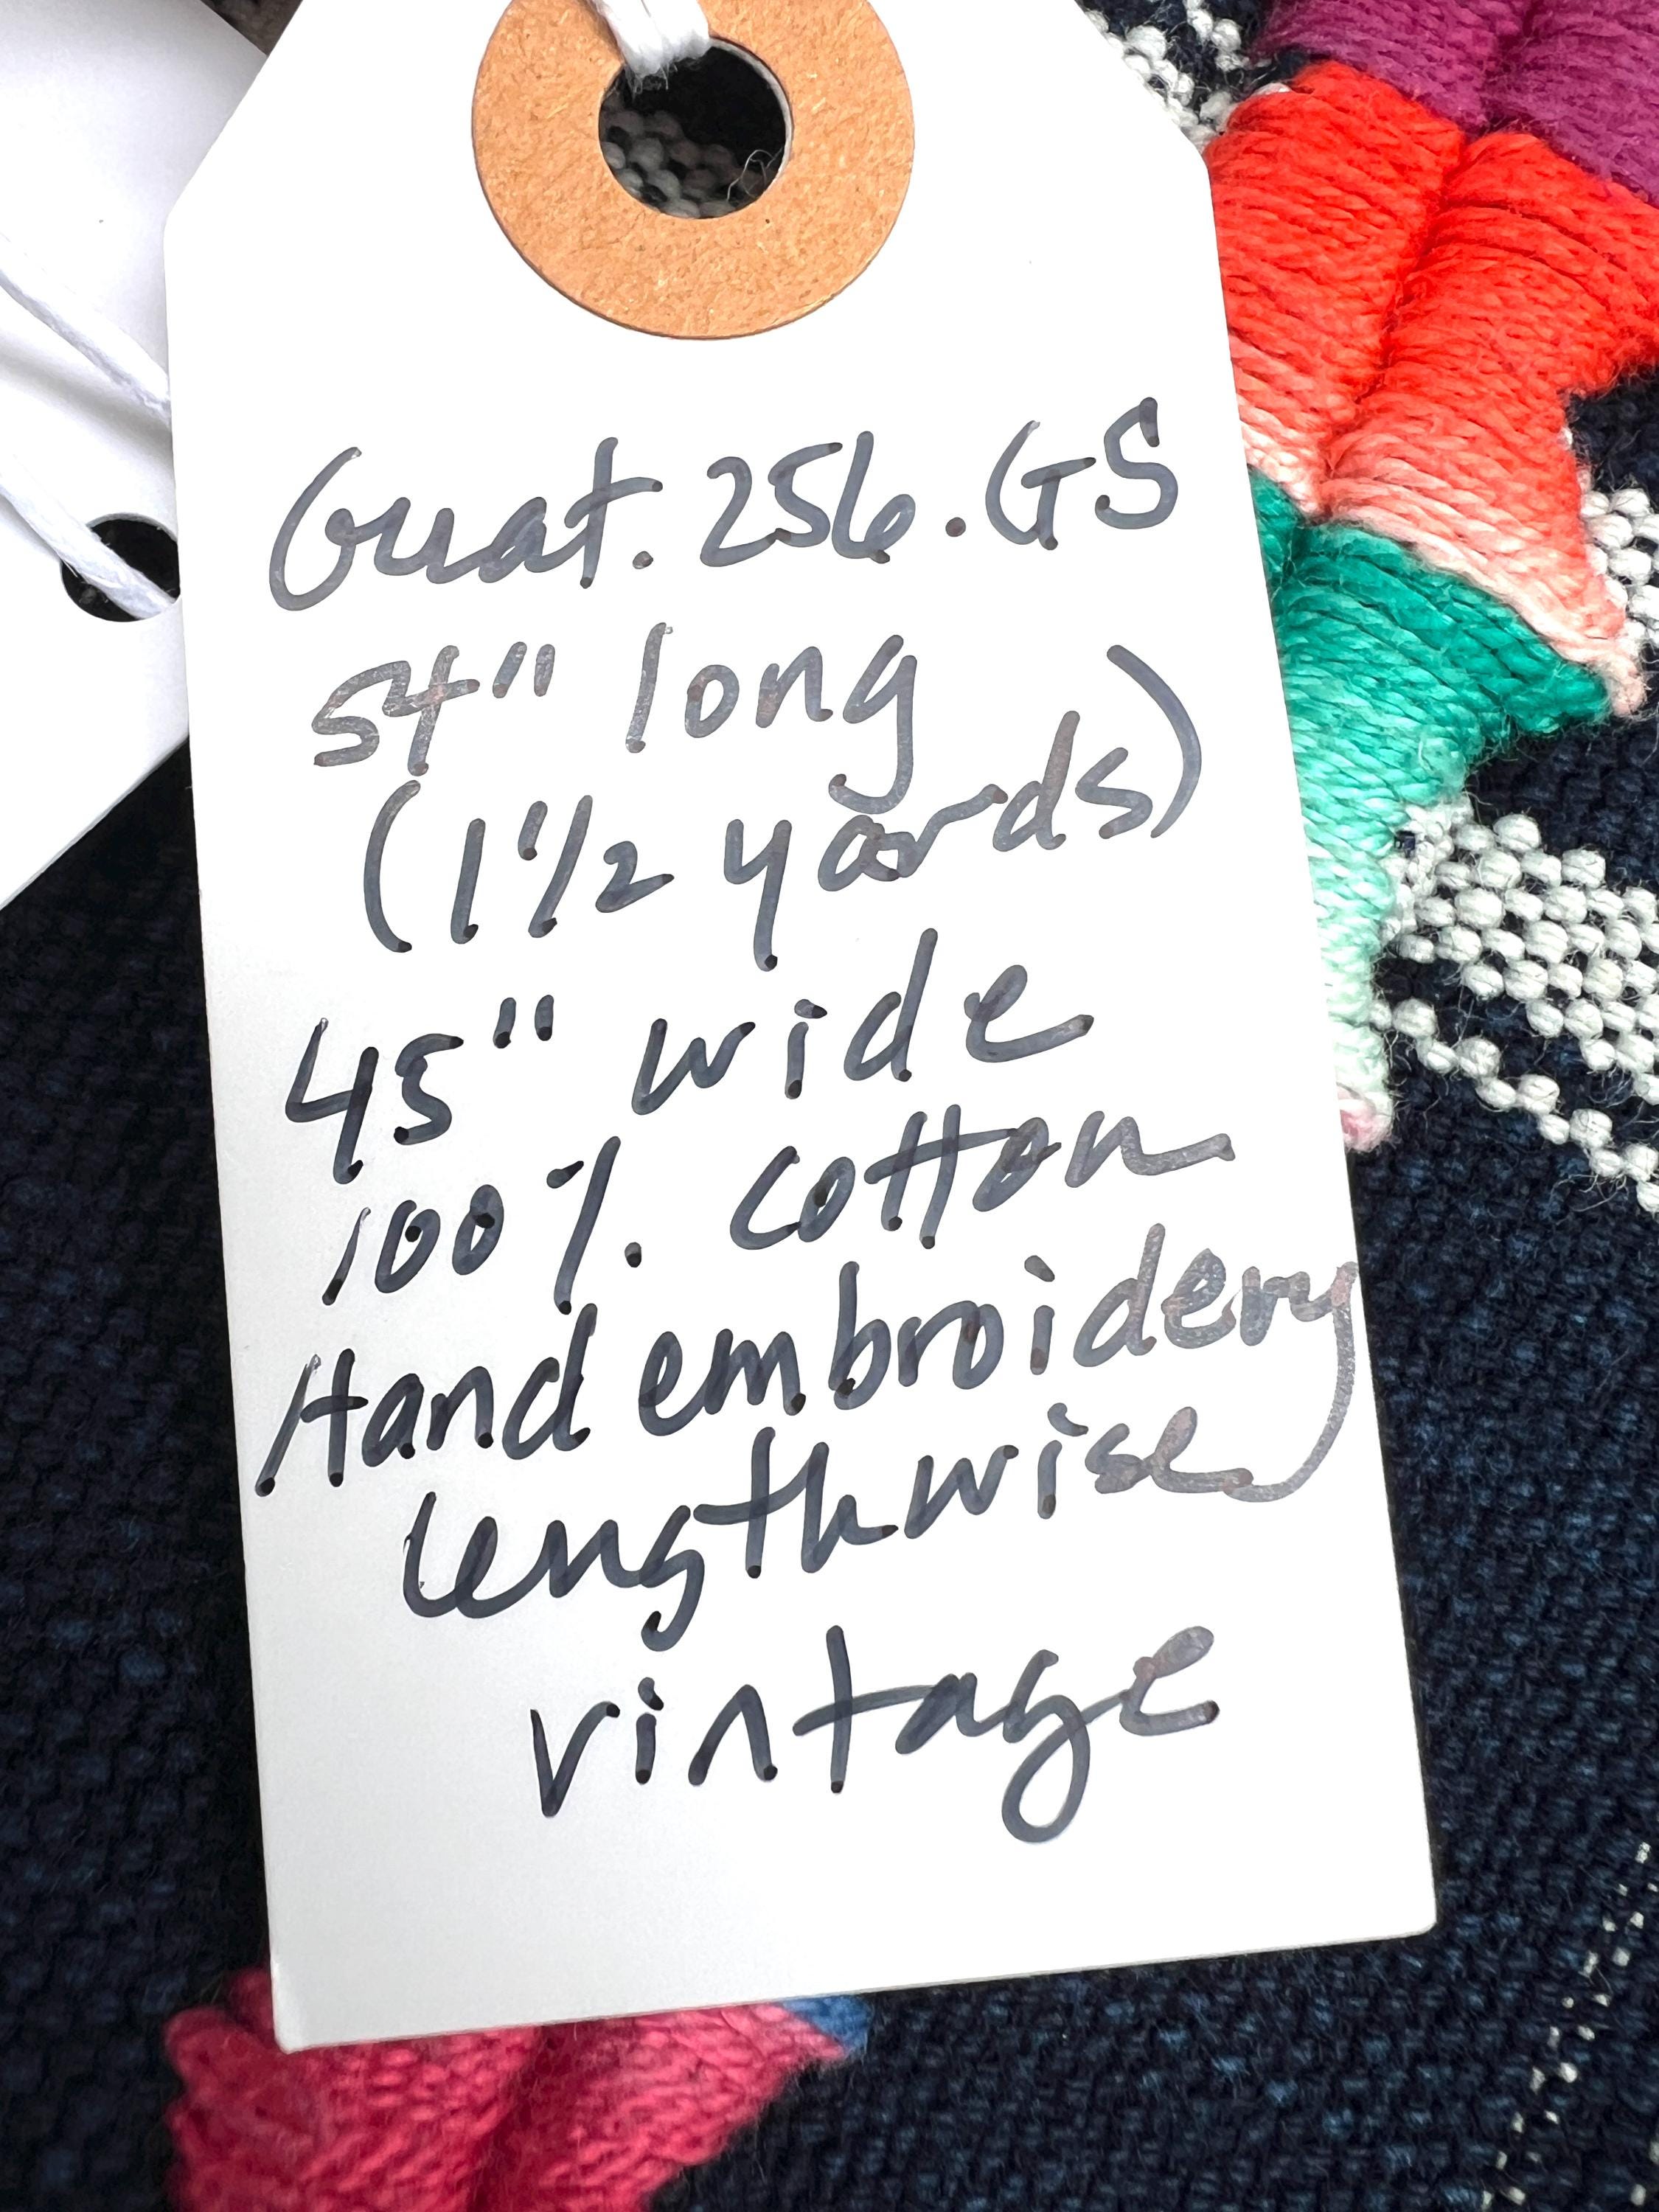 Guat. 256.GS
54" long
(1 1/2 yards)
45" wide
100% cotton
Hand embroidery
lengthwise
vintage